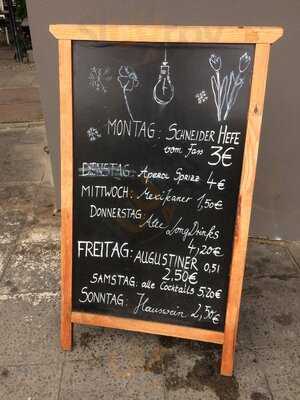 MONTAG: SCHNEIDER HEFE
vom Fass 3€
DIENSTAG: Aperol Sprizz 4€
MITTWOCH: Mexikaner 1,50€
DONNERSTAG: Alle Long Drinks
4,20€
FREITAG: AUGUSTINER 0,5l
2,50€
SAMSTAG: alle Cocktails 5,20€
SONNTAG: Hauswein 2,50€